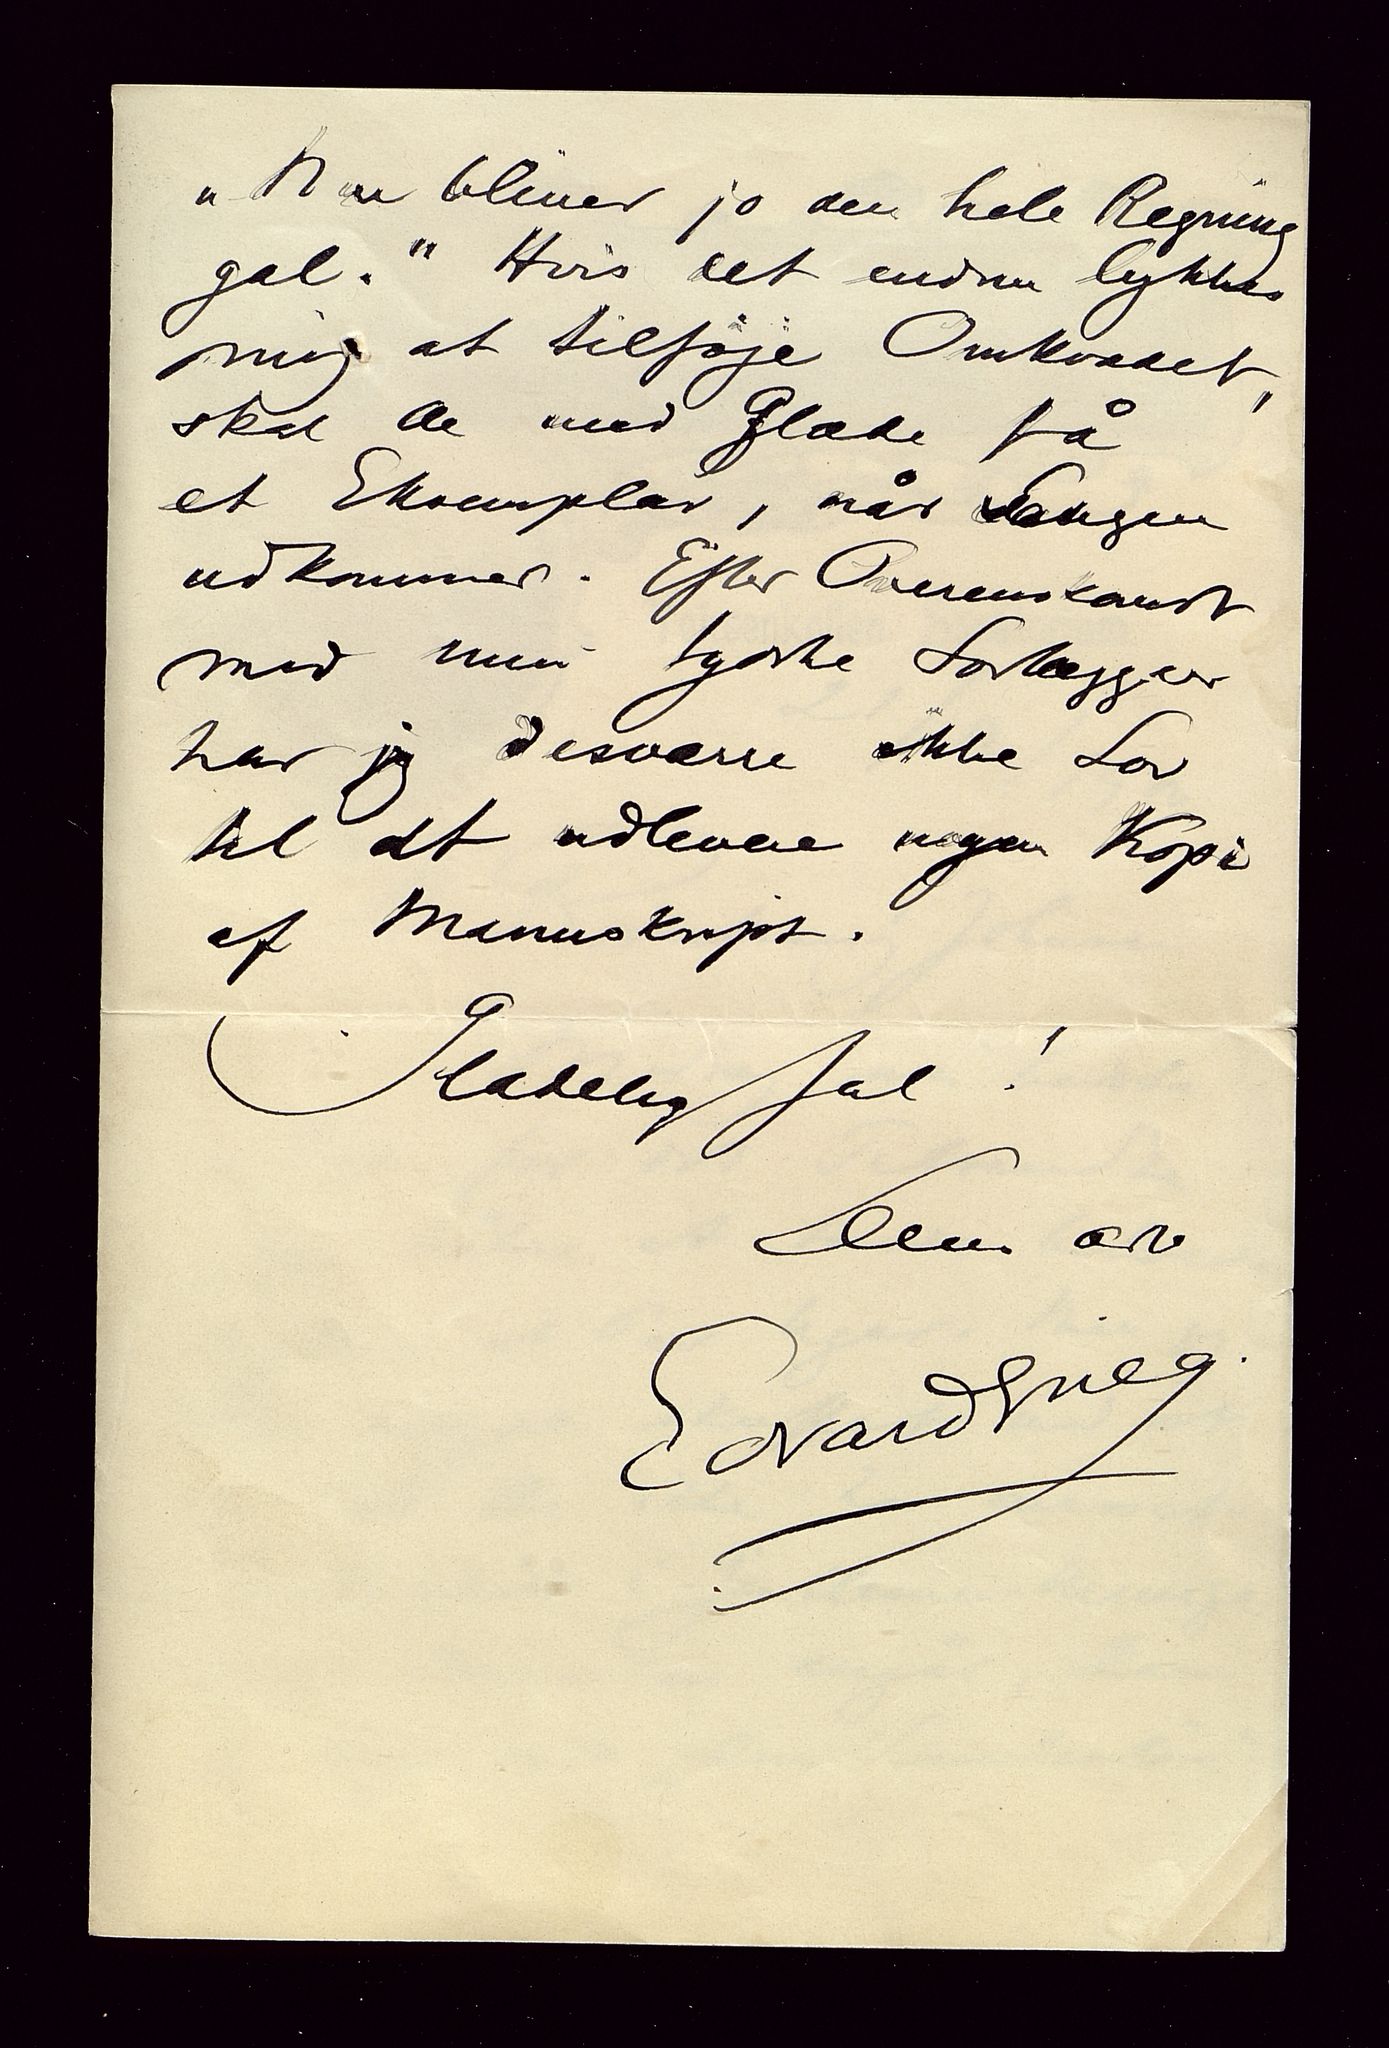 „Nu bliver jo den hele Regning
gal." Hvis det endnu lykkes
mig at tilføje Omkvædet,
skal De med Glæde få
et Exemplar, når Sangen
udkommer. Efter Overenskomst
med min tyske Forlægger
har jeg desværre ikke Lov
til at udlevere nogen Kopi
af Manuskript.
Glædelig Jul!
Deres ærb
Edvard Grieg.